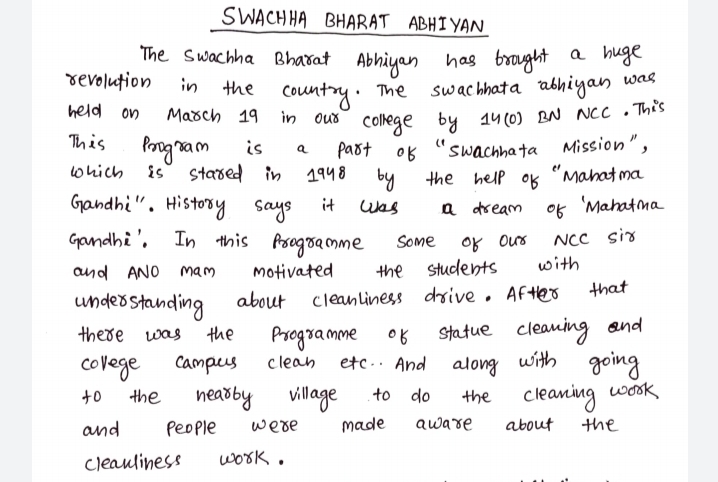 SWACHHA BHARAT ABHIYAN
The Swachha Bharat Abhiyan has brought a huge
revolution in the country. The swachhata abhiyan was
held on March 19 in our college by 14(O) BN NCC. This
This Program is a part of "Swachhata Mission",
which is stared in 1948 by the help of "Mahatma
Gandhi". History says it was a dream of 'Mahatma
Gandhi'. In this Programme some of our NCC sir
and ANO mam motivated the students with
understanding about cleanliness drive. After that
there was the Programme of statue cleaning and
college campus clean etc.. And along with going
to the nearby village to do the cleaning work
and people were made aware about the
cleanliness work.